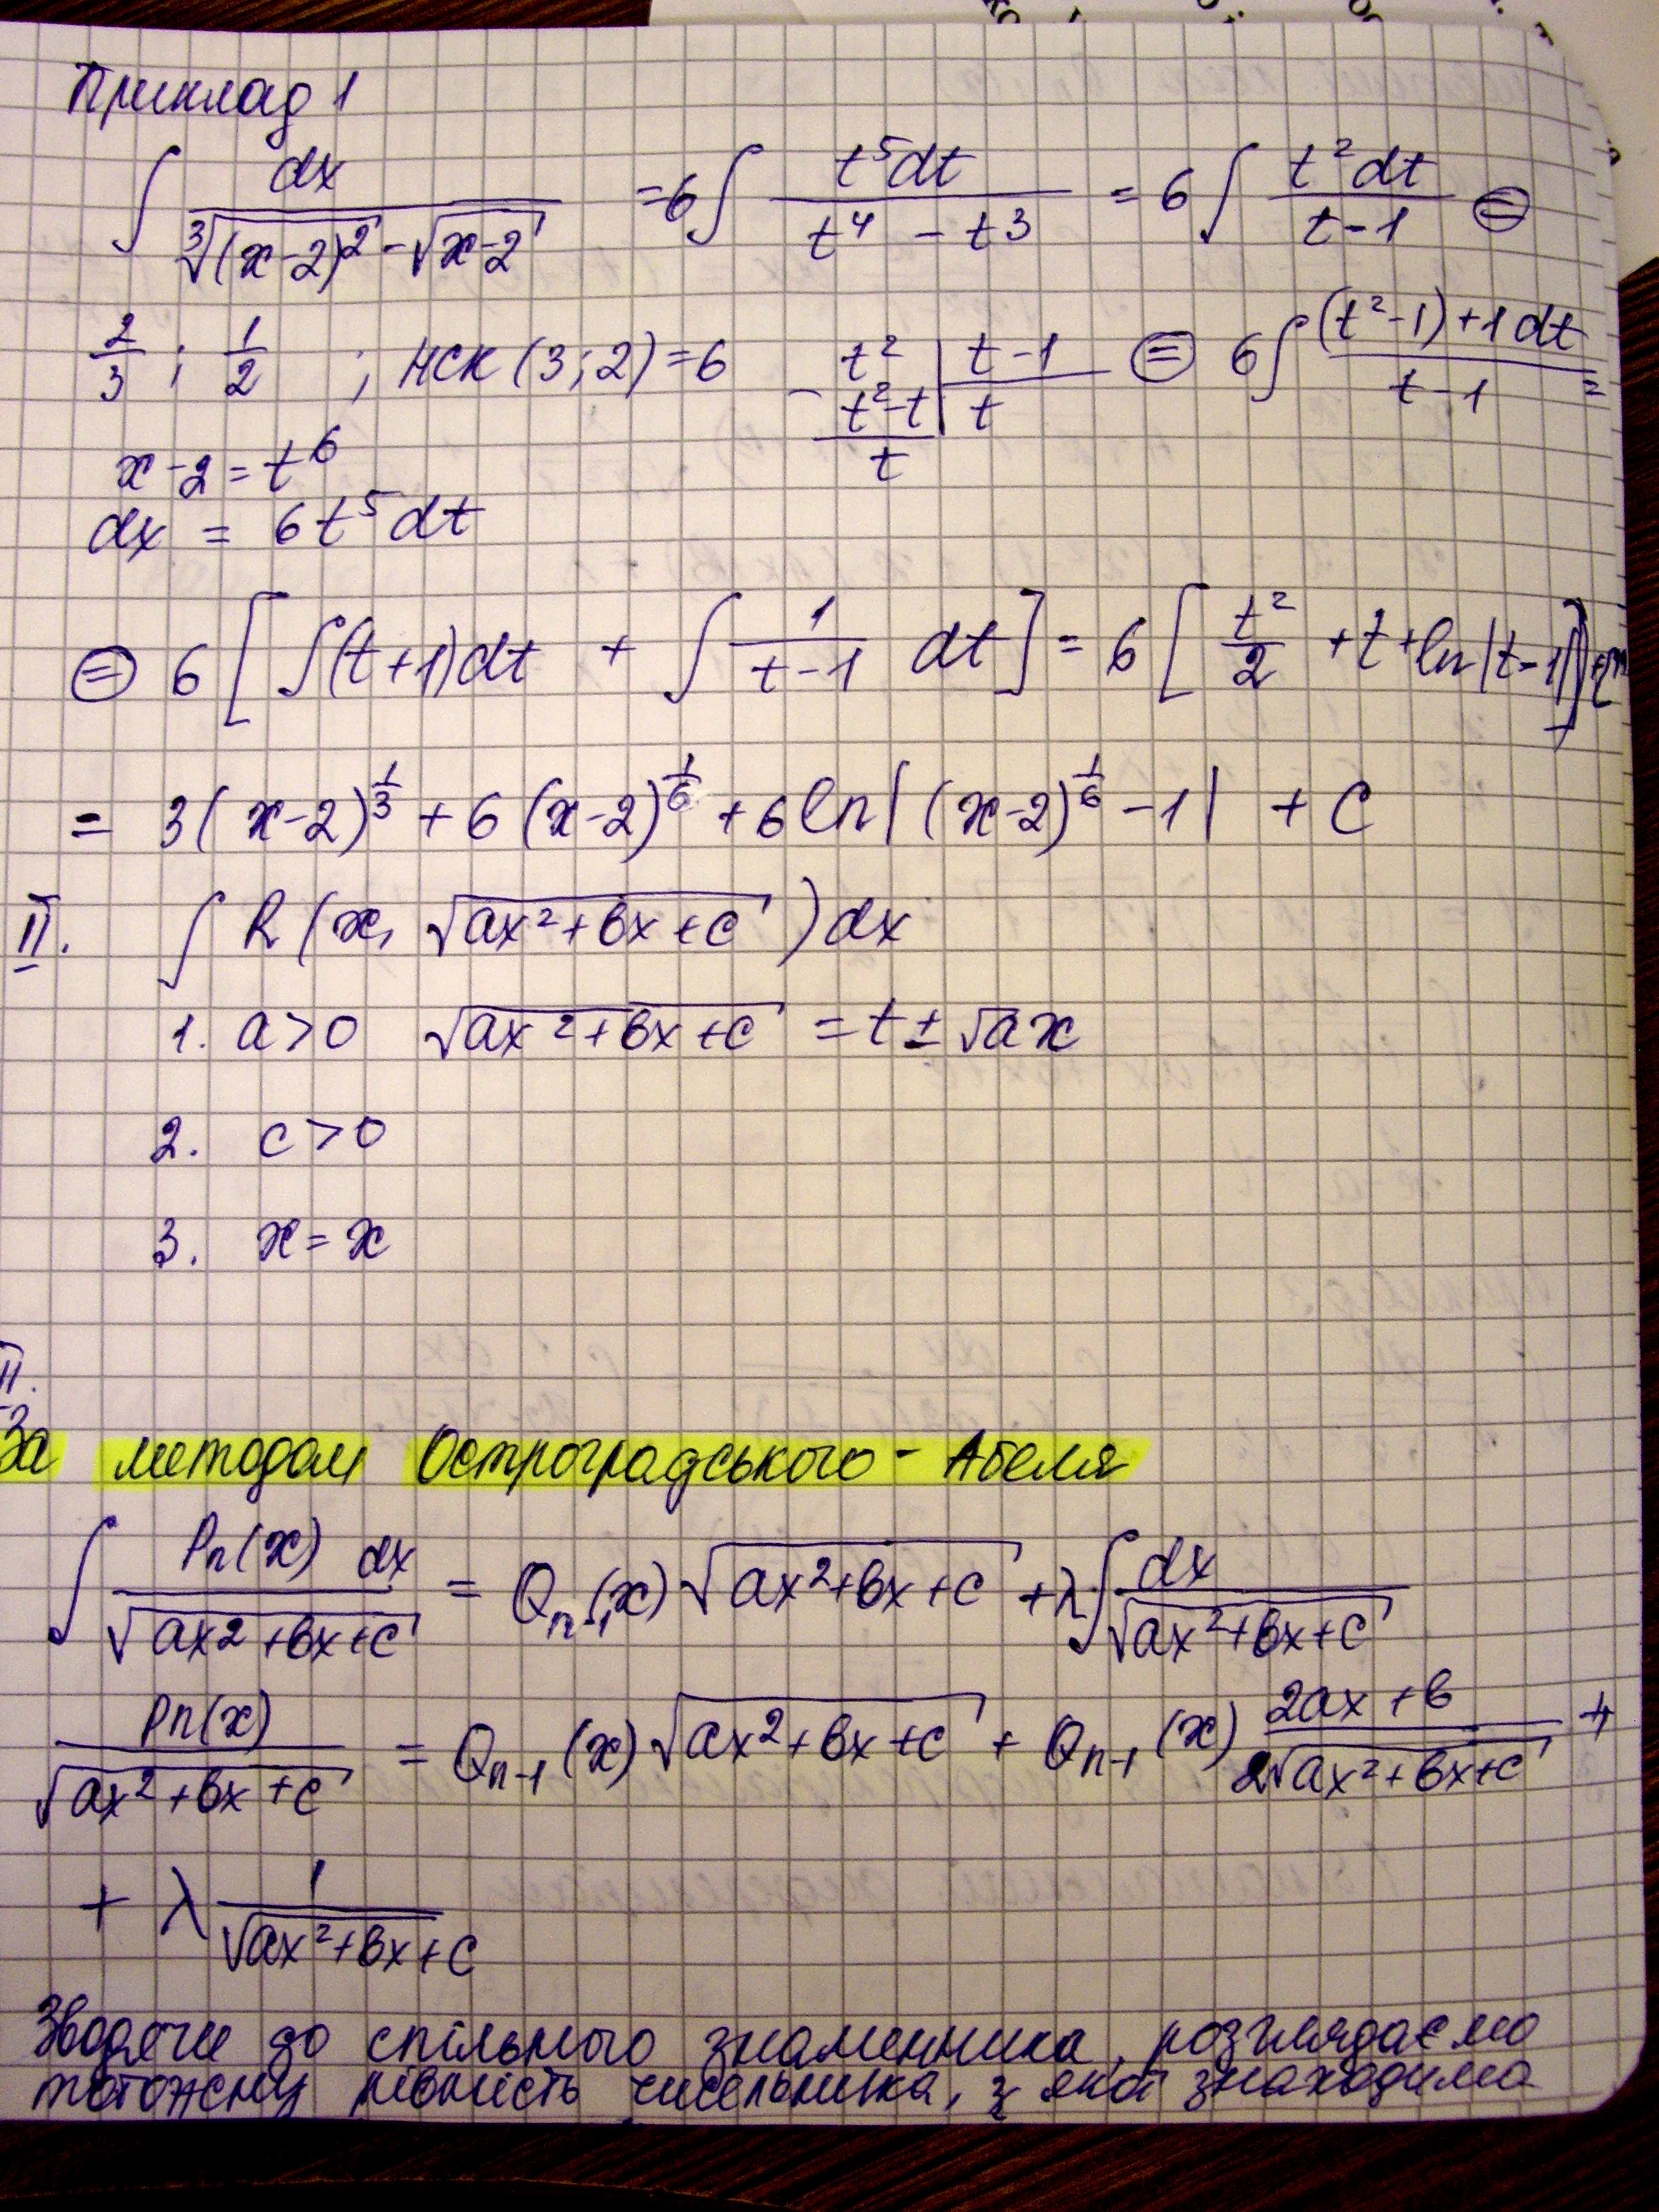 Приклад 1
∫ dx / (∛((x-2)²) - √(x-2)) = 6∫ t⁵dt / (t⁴ - t³) = 6∫ t²dt / (t-1) ⊜
2/3 ; 1/2 ; НСК (3;2) = 6   t² | t-1   ⊜ 6∫ ((t²-1)+1dt) / (t-1) =
- t²-t | t
t
x-2 = t⁶
dx = 6t⁵dt
⊜ 6[∫(t+1)dt + ∫ 1/(t-1) dt] = 6[t²/2 + t + ln|t-1|]
= 3(x-2)^(1/3) + 6(x-2)^(1/6) + 6ln|(x-2)^(1/6) - 1| + C
II. ∫R(x, √(ax²+bx+c))dx
1. a>0 √(ax²+bx+c) = t ± √a x
2. c>0
3. x = x
II.
За методом Остроградського - Абеля
∫ Pn(x) dx / √(ax2+bx+c) = Qn-1(x)√(ax²+bx+c) + λ∫ dx / √(ax²+bx+c)
Pn(x) / √(ax²+bx+c) = Qn-1(x)√(ax2+bx+c) + Qn-1(x) (2ax+b) / 2√(ax²+bx+c) +
+ λ 1/√(ax²+bx+c)
Зводячи до спільного знаменника, розглядаємо
тотожну рівність чисельника, з якої знаходимо